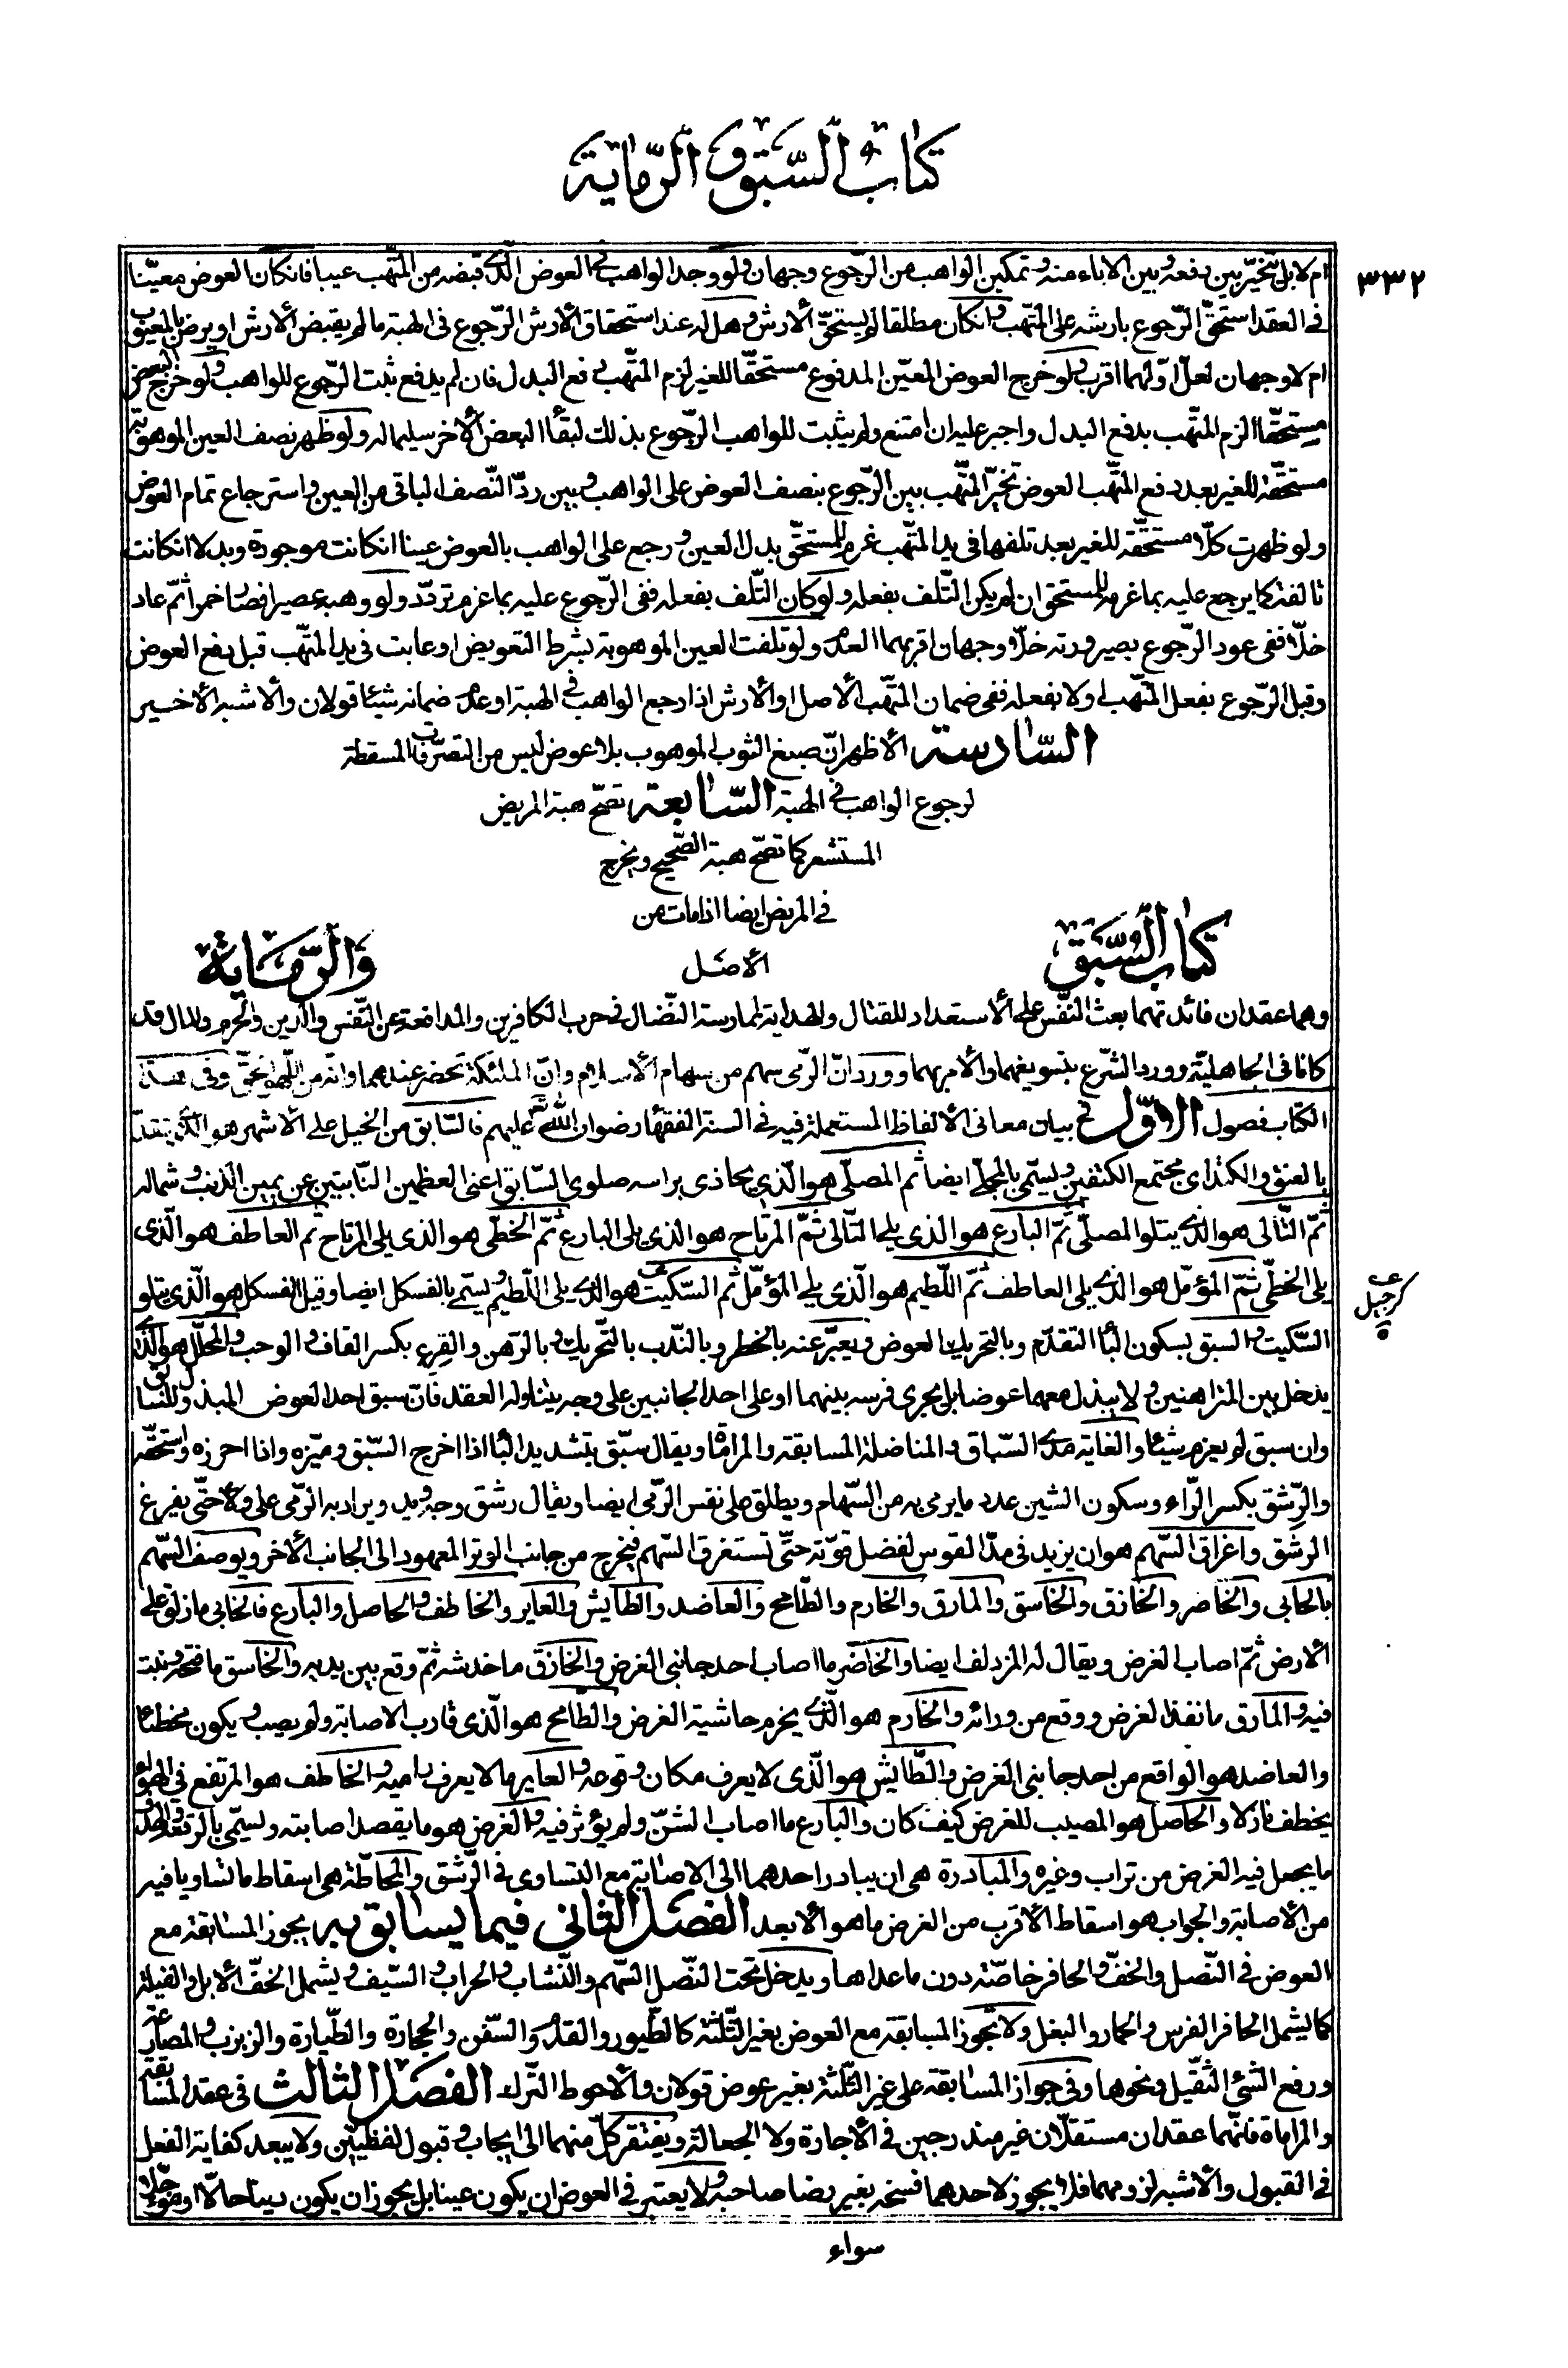 كتاب السّبق والرّماية
٣٣٢
ام لا بل يتخيّر بين دفعه وبين الاباء منه وتمكين الواهب من الرّجوع وجهان ولو وجد الواهب في العوض الّذى قبضه من المتّهب عيبا فانكان العوض معيّنا
في العقد استحقّ الرّجوع بارشه على المتّهب وانكان مطلقا لم يستحقّ الأرش وهل له عند استحقاق الأرش الرّجوع في الهبة ما لم يقبض الأرش او يرض بالمعيوب
ام لا وجهان لعلّ اوّلهما اقرب ولو خرج العوض المعيّن المدفوع مستحقّا للغير لزم المتّهب دفع البدل فان لم يدفع ثبت الرّجوع للواهب ولو خرج البعض
مستحقّا الزم المتّهب بدفع البدل واجبر عليه ان امتنع ولم يثبت للواهب الرّجوع بذلك لبقاء البعض الأخر سليما له ولو ظهر نصف العين الموهوبة
مستحقّه للغير بعد دفع المتّهب العوض تخيّر المتّهب بين الرّجوع بنصف العوض على الواهب وبين ردّ النّصف الباقى من العين واسترجاع تمام العوض
ولو ظهرت كلّا مستحقّه للغير بعد تلفها في يد المتّهب غرم للمستحقّ بدل العين ورجع على الواهب بالعوض عينا انكانت موجودة وبدلا انكانت
تالفة كما يرجع عليه بما غرمه للمستحق ان لم يكن التّلف بفعله ولو كان التّلف بفعله ففى الرّجوع عليه بما غرم تردّد ولو وهبه عصيرا فصار خمرا ثمّ عاد
خلّا ففى عود الرّجوع بصيرورته خلّا وجهان اقربهما العدم ولو تلفت العين الموهوبة بشرط التعويض او عابت في يد المتّهب قبل دفع العوض
وقبل الرّجوع بفعل المتّهب او لا بفعله ففى ضمان المتّهب الأصل او الأرش اذا رجع الواهب في الهبة او عدم ضمانه شيئا قولان والأشبه الأخير
السّادسة الأظهر انّ صبغ الثوب الموهوب بلا عوض ليس من التصرّفات المسقطة
لرجوع الواهب في الهبة السّابعة تصحّ هبة المريض
المستشعر كما تصحّ هبة الصّحيح ويخرج
في المرض ايضا اذا مات من
الأصل
كتاب السّبق والرّماية
وهما عقدان فائدتهما بعث النّفس على الأستعداد للقتال والهداية لممارسة النّضال في حرب الكافرين والمدافعة عن النّفس والدّين والحرم والمال قد
كانا في الجاهليّة وورد الشّرع بتسويغهما والأمر بهما وورد انّ الرّمى سهم من سهام الأسلام وانّ الملئكة تحضر عندهما وانّه من اللّهو الحقّ وفى هذا
الكتاب فصول الاوّل في بيان معانى الألفاظ المستعملة فيه في السنة الفقهاء رضوان الله تعالى عليهم فالسّابق من الخيل على الأشهر هو الّذى يتقدّم
بالعنق والكتد اى مجتمع الكتفين ويسمّى بالمجلّى ايضا ثم المصلّى هو الّذى يحاذى براسه صلوى السّابق اعنى العظمين النّابتين عن يمين الذنب وشماله
ثمّ التّالى هو الّذى يتلو المصلّى ثمّ البارع هو الذى يلى التّالى ثمّ المرتاح هو الذى يلى البارع ثمّ الخطّى هو الذى يلى المرتاح ثم العاطف هو الّذى
يلى الخطّى ثمّ المؤمّل هو الذى يلى العاطف ثمّ اللّطيم هو الّذى يلى المؤمّل ثمّ السّكيت هو الّذى يلى اللّطيم ويسمّى بالفسكل ايضا وقيل الفسكل هو الّذى يتلو
السّكيت والسبق بسكون الباء التقدّم وبالتحريك العوض ويعبّر عنه بالخطر وبالنّدب بالتّحريك وبالرّهن والقرع بكسر القاف والوجب والمحلّل هو الّذى
يدخل بين المتراهنين ولا يبذل معهما عوضا بل يجرى فرسه بينهما او على احد الجانبين على وجه يتناوله العقد فان سبق اخذ العوض المبذول للسّابق
وان سبق لم يغرم شيئا والغاية مدى السّباق والمناضلة المسابقة والمراماة ويقال سبّق بتشديد الباء اذا اخرج السّبق وميّزه واذا احرزه واستحقّه
والرّشق بكسر الرّاء وسكون الشين عدد ما يرمى به من السّهام ويطلق على نفس الرّمى ايضا ويقال رشق وجه ويد ويراد به الرّمى على ولاء حتّى يفرغ
الرشق واغراق السّهم هو ان يزيد في مدّ القوس لفضل قوّته حتّى تستغرق السّهم فيخرج من جانب الوتر المعهود الى الجانب الأخر ويوصف السّهم
بالحابى والخاصر والخازق والخاسق والمارق والخارم والطّامح والعاضد والطّايش والعاير والخاطف والحاصل والبارع فالحابى ما زلق على
الأرض ثمّ اصاب الغرض ويقال له المزدلف ايضا والخاصر ما اصاب احد جانبى الغرض والخازق ما خدشه ثمّ وقع بين يديه والخاسق ما فتحه وثبت
فيه والمارق ما نفذ الغرض ووقع من ورائه والخارم هو الّذى يخرم حاشية الغرض والطّامح هو الّذى قارب الاصابة ولم يصب ويكون مخطئا
والعاضد هو الواقع من احد جانبى الغرض والطّايش هو الّذى لا يعرف مكان وقوعه والعاير ما لا يعرف راميه والخاطف هو المرتفع في الهواء
يخطف نازلا والحاصل هو المصيب للغرض كيف كان والبارع ما اصاب الشنّ ولم يؤثر فيه والغرض هو ما يقصد اصابته ويسمّى بالرقعة والهدف
ما يجعل فيه الغرض من تراب وغيره والمبادرة هى ان يبادر احدهما الى الاصابة مع التساوى في الرّشق والمحاطّة هى اسقاط ما تساويا فيه
من الأصابة والحواب هو اسقاط الأقرب من الغرض ما هو الأبعد الفصل الثانى فيما يسابق به يجوز المسابقة مع
العوض في النّصل والخفّ والحافر خاصّة دون ما عداها ويدخل تحت النصل السّهم والنّشاب والحراب والسّيف ويشمل الخفّ الأبل والفيلة
كما يشمل الحافر الفرس والحمار والبغل ولا تجوز المسابقة مع العوض بغير الثّلثة كالطّيور والقدم والسّفن والحجارة والطّيارة والزبزب والمصارعة
ورفع الشئ الثّقيل ونحوها وفى جواز المسابقة على غير الثّلثة بغير عوض قولان والأحوط الترك الفصل الثالث في عقد المسابقة
والمراماة فانّهما عقدان مستقلّان غير مندرجين في الأجارة ولا الجعالة ويفتقر كلّ منهما الى ايجاب وقبول لفظيّين ولا يبعد كفاية الفعل
في القبول والأشبه لزومهما فلا يجوز لاحدهما فسخه بغير رضا صاحبه ولا يعتبر في العوض ان يكون عينا بل يجوز ان يكون دينا حالّا او مؤجّلا
سواء